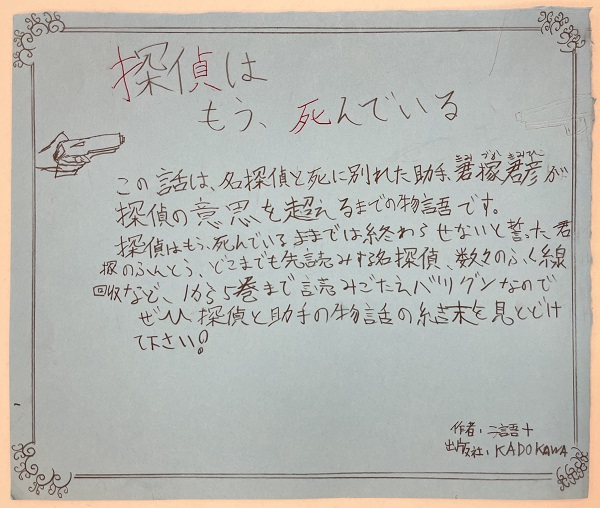 探偵は
もう、死んでいる
この話は、名探偵と死に別れた助手、君塚君彦が
探偵の意思を超えるまでの物語です。
探偵はもう、死んでいるままでは終わらせないと誓った君
塚のふんとう、どこまでも先読みする名探偵、数々のふく線
回収など、1から5巻まで読みごたえバツグンなので
ぜひ探偵と助手の物話の結末を見とどけ
て下さい!
作者:二語十
出版社:KADOKAWA